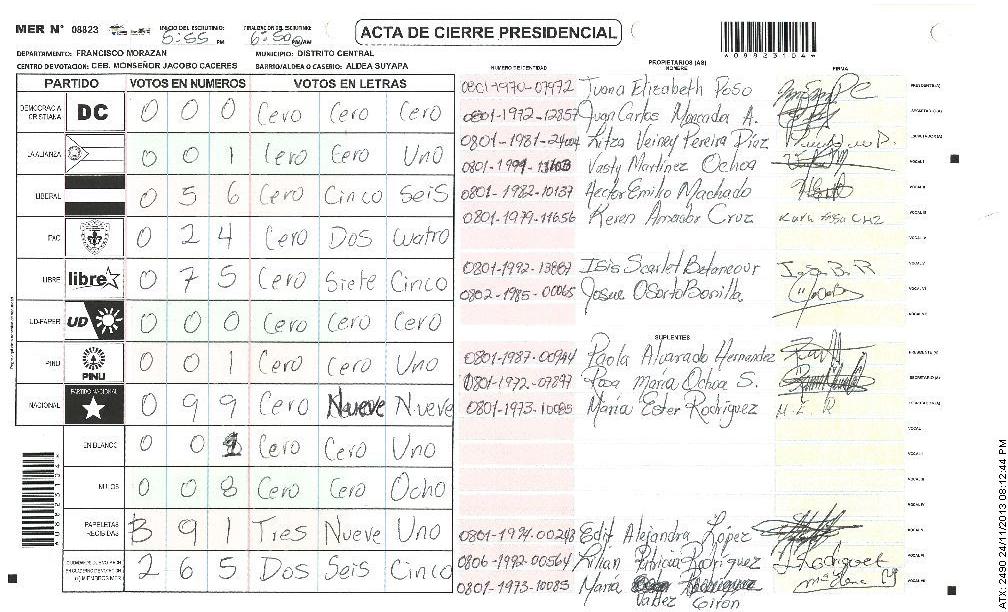 MER Nº 08823
INICIO DEL ESCRUTINIO: 5:55 PM
FINALIZACION DEL ESCRUTINIO: 6:50 PM/AM
ACTA DE CIERRE PRESIDENCIAL
*08823104*
DEPARTAMENTO: FRANCISCO MORAZAN
MUNICIPIO: DISTRITO CENTRAL
CENTRO DE VOTACION: CEB. MONSEÑOR JACOBO CACERES
BARRIO/ALDEA O CASERIO: ALDEA SUYAPA
PARTIDO VOTOS EN NUMEROS VOTOS EN LETRAS
DEMOCRACIA CRISTIANA DC 0 0 0 Cero Cero Cero
LA ALIANZA 0 0 1 Cero Cero Uno
LIBERAL 0 5 6 Cero Cinco Seis
PAC 0 2 4 Cero Dos Cuatro
LIBRE libre 0 7 5 Cero Siete Cinco
UD-FAPER UD 0 0 0 Cero Cero Cero
PINU PINU 0 0 1 Cero Cero Uno
NACIONAL PARTIDO NACIONAL 0 9 9 Cero Nueve Nueve
EN BLANCO 0 0 1 Cero Cero Uno
NULOS 0 0 8 Cero Cero Ocho
PAPELETAS RECIBIDAS 3 9 1 Tres Nueve Uno
2 6 5 Dos Seis Cinco
NUMERO DE IDENTIDAD
PROPIETARIOS (AS)
NOMBRE
FIRMA
Juana Elizabeth Poso PRESIDENTE(A)
0801-1972-12857 Juan Carlos Moncada A. SECRETARIO(A)
Litza Veiney Pereira Díaz ESCRUTADOR(A)
Vasty Martínez Ochoa VOCAL I
0801-1982-10137 Hector Emilio Machado VOCAL II
0801-1979-11656 Keren Amador Cruz VOCAL III
VOCAL IV
Isis Scarlet Betancour VOCAL V
0802-1985-00065 Josue Osorto Bonilla VOCAL VI
VOCAL VII
SUPLENTES
0801-1987-00944 Paola Alvarado Hernandez PRESIDENTE(A)
0801-1972-07897 Rosa María Ochoa S. SECRETARIO(A)
0801-1973-10085 María Ester Rodríguez M. E. R ESCRUTADOR(A)
VOCAL I
VOCAL II
VOCAL III
VOCAL IV
0801-1994-00248 Edit Alejandra López VOCAL V
0806-1992-00564 Lilian Patricia Rodriguez VOCAL VI
0801-1973-10085 María Rodriguez VOCAL VII
Valdez Giron
ATX: 2490 24/11/2013 08:12:44 PM